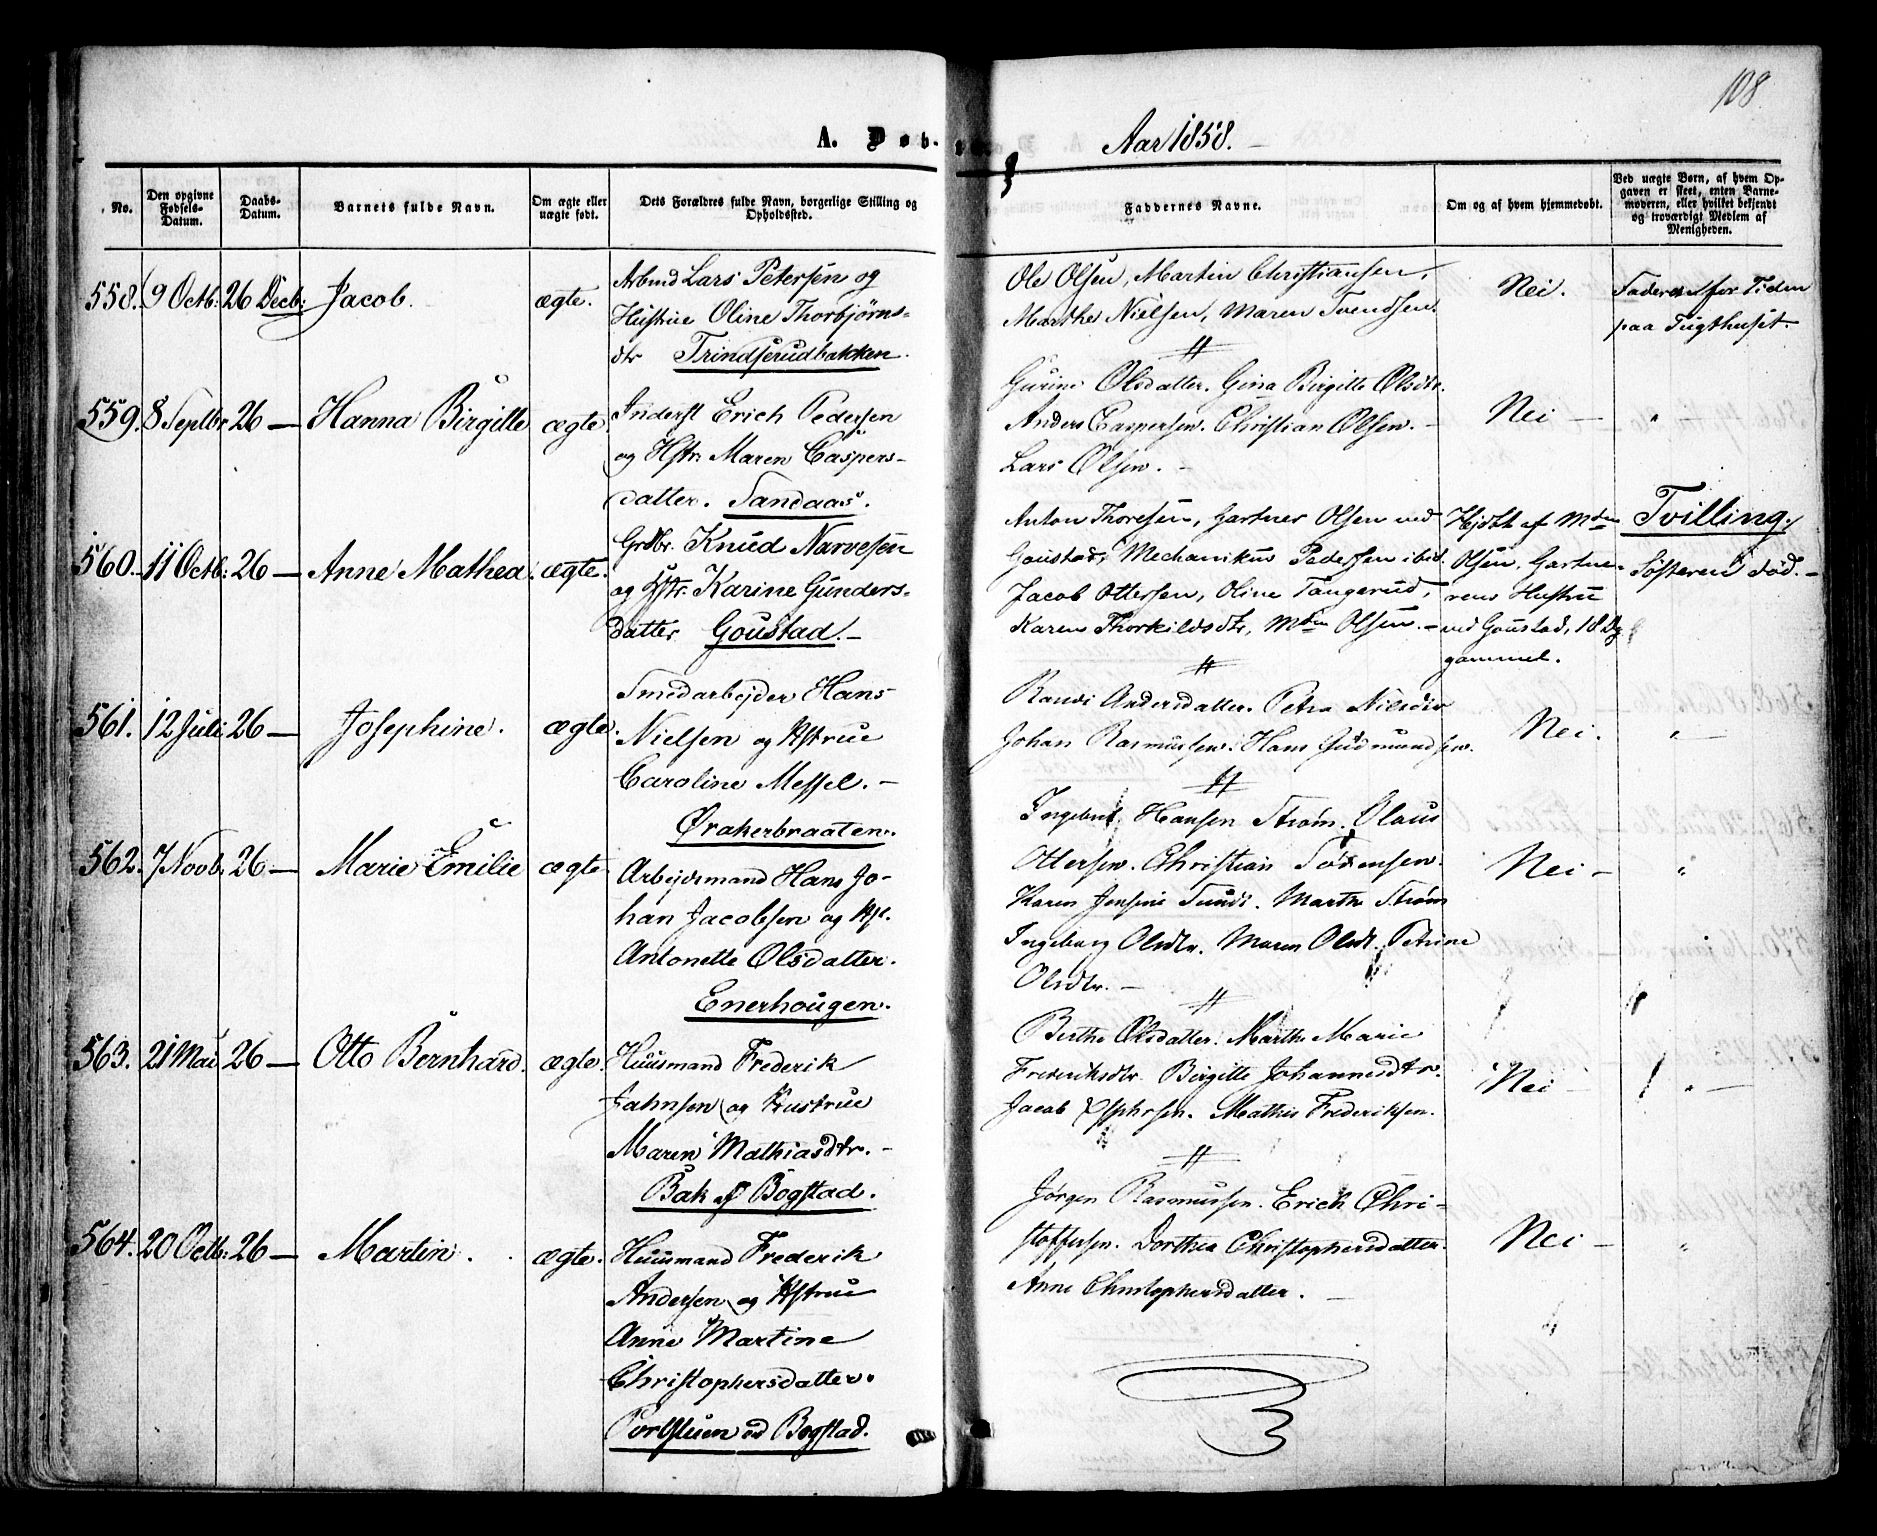 108
A. Døb-
Aar 1858.
No.
Den opgivne Fødsels-Datum.
Daabs-Datum.
Barnets fulde Navn.
Om ægte eller uægte født.
Dets Forældres fulde Navn, borgerlige Stilling og Opholdssted.
Faddernes Navne.
Om og af hvem hjemmedøbt.
Ved uægte Børn, af hvem Opgaven er skeet, enten Barnemoderen, eller hvilket bekjendt og troværdigt Medlem af Menigheden.
558. 9 Octb: 26 Decb: Jacob. ægte.
Arbmd Lars Petersen og
Hustrue Oline Thorbjørns-
dtr Trindserudbakken.
Ole Olsen, Martin Christiansen,
Marthe Nielsen, Maren Svendsen.
Nei.
Faderen for Tiden
paa Tugthuset.
559. 8 Septbr 26 — Hanna Birgitte ægte.
Inderst Erich Pedersen
og Hstr: Maren Caspers-
datter. Sandaas.
Gurine Olsdatter. Gina Birgitte Olsdtr.
Anders Caspersen. Christian Olsen. —
Lars Olsen. —
Nei —
"
560. 11 Octb: 26 — Anne Mathea. ægte.
Grdbr. Knud Narvesen
og Hstr: Karine Gunders-
datter Goustad. —
Anton Thoresen, Gartner Olsen ved
Goustad, Mechanikus Pedersen ibid.
Jacob Ottersen, Oline Tangerud,
Karen Thorkildsdtr, Mdm Olsen. —
Hjdbt af Mdm
Olsen, Gartne-
rens Hustrue
ved Goustad, 18 Dg
gammel.
Tvilling.
Søsteren død. —
561. 12 Juli 26 — Josephine. ægte.
Smedarbejder Hans
Nielsen og Hstrue
Caroline Messel. —
Ørakerbraaten.
Randi Andersdatter. Petra Nilsdtr
Johan Rasmussen. Hans Gudmundsen.
Nei.
" —
562. 7 Novb. 26 — Marie Emilie ægte
Arbejdsmand Hans Jo-
han Jacobsen og Hst.
Antonette Olsdatter.
Enerhougen.
Ingebret Hansen Strøm. Olaus
Ottersen. Christian Sørensen.
Karen Jensine Sundt. Marthe Strøm
Ingeborg Olsdtr. Maren Olsdt. Petrine
Olsdtr. —
Nei —
"
563. 21 Mai 26 — Otto Bernhard. ægte.
Huusmand Frederik
Jahnsen og Hustrue
Maren Mathiasdtr. —
Bak af Bogstad.
Berthe Olsdatter. Marthe Marie
Frederiksdtr. Birgitte Johannesdtr.
Jacob Mathis Frederiksen.
Nei —
" —
564. 20 Octb: 26 — Martin. ægte.
Huusmand Frederik
Andersen og Hstrue
Anne Martine
Christophersdatter.
Bogstad.
Jørgen Rasmussen. Erich Chri-
stoffersen. Dorthea Christophersdatter.
Anne Christophersdatter. —
Nei —
"